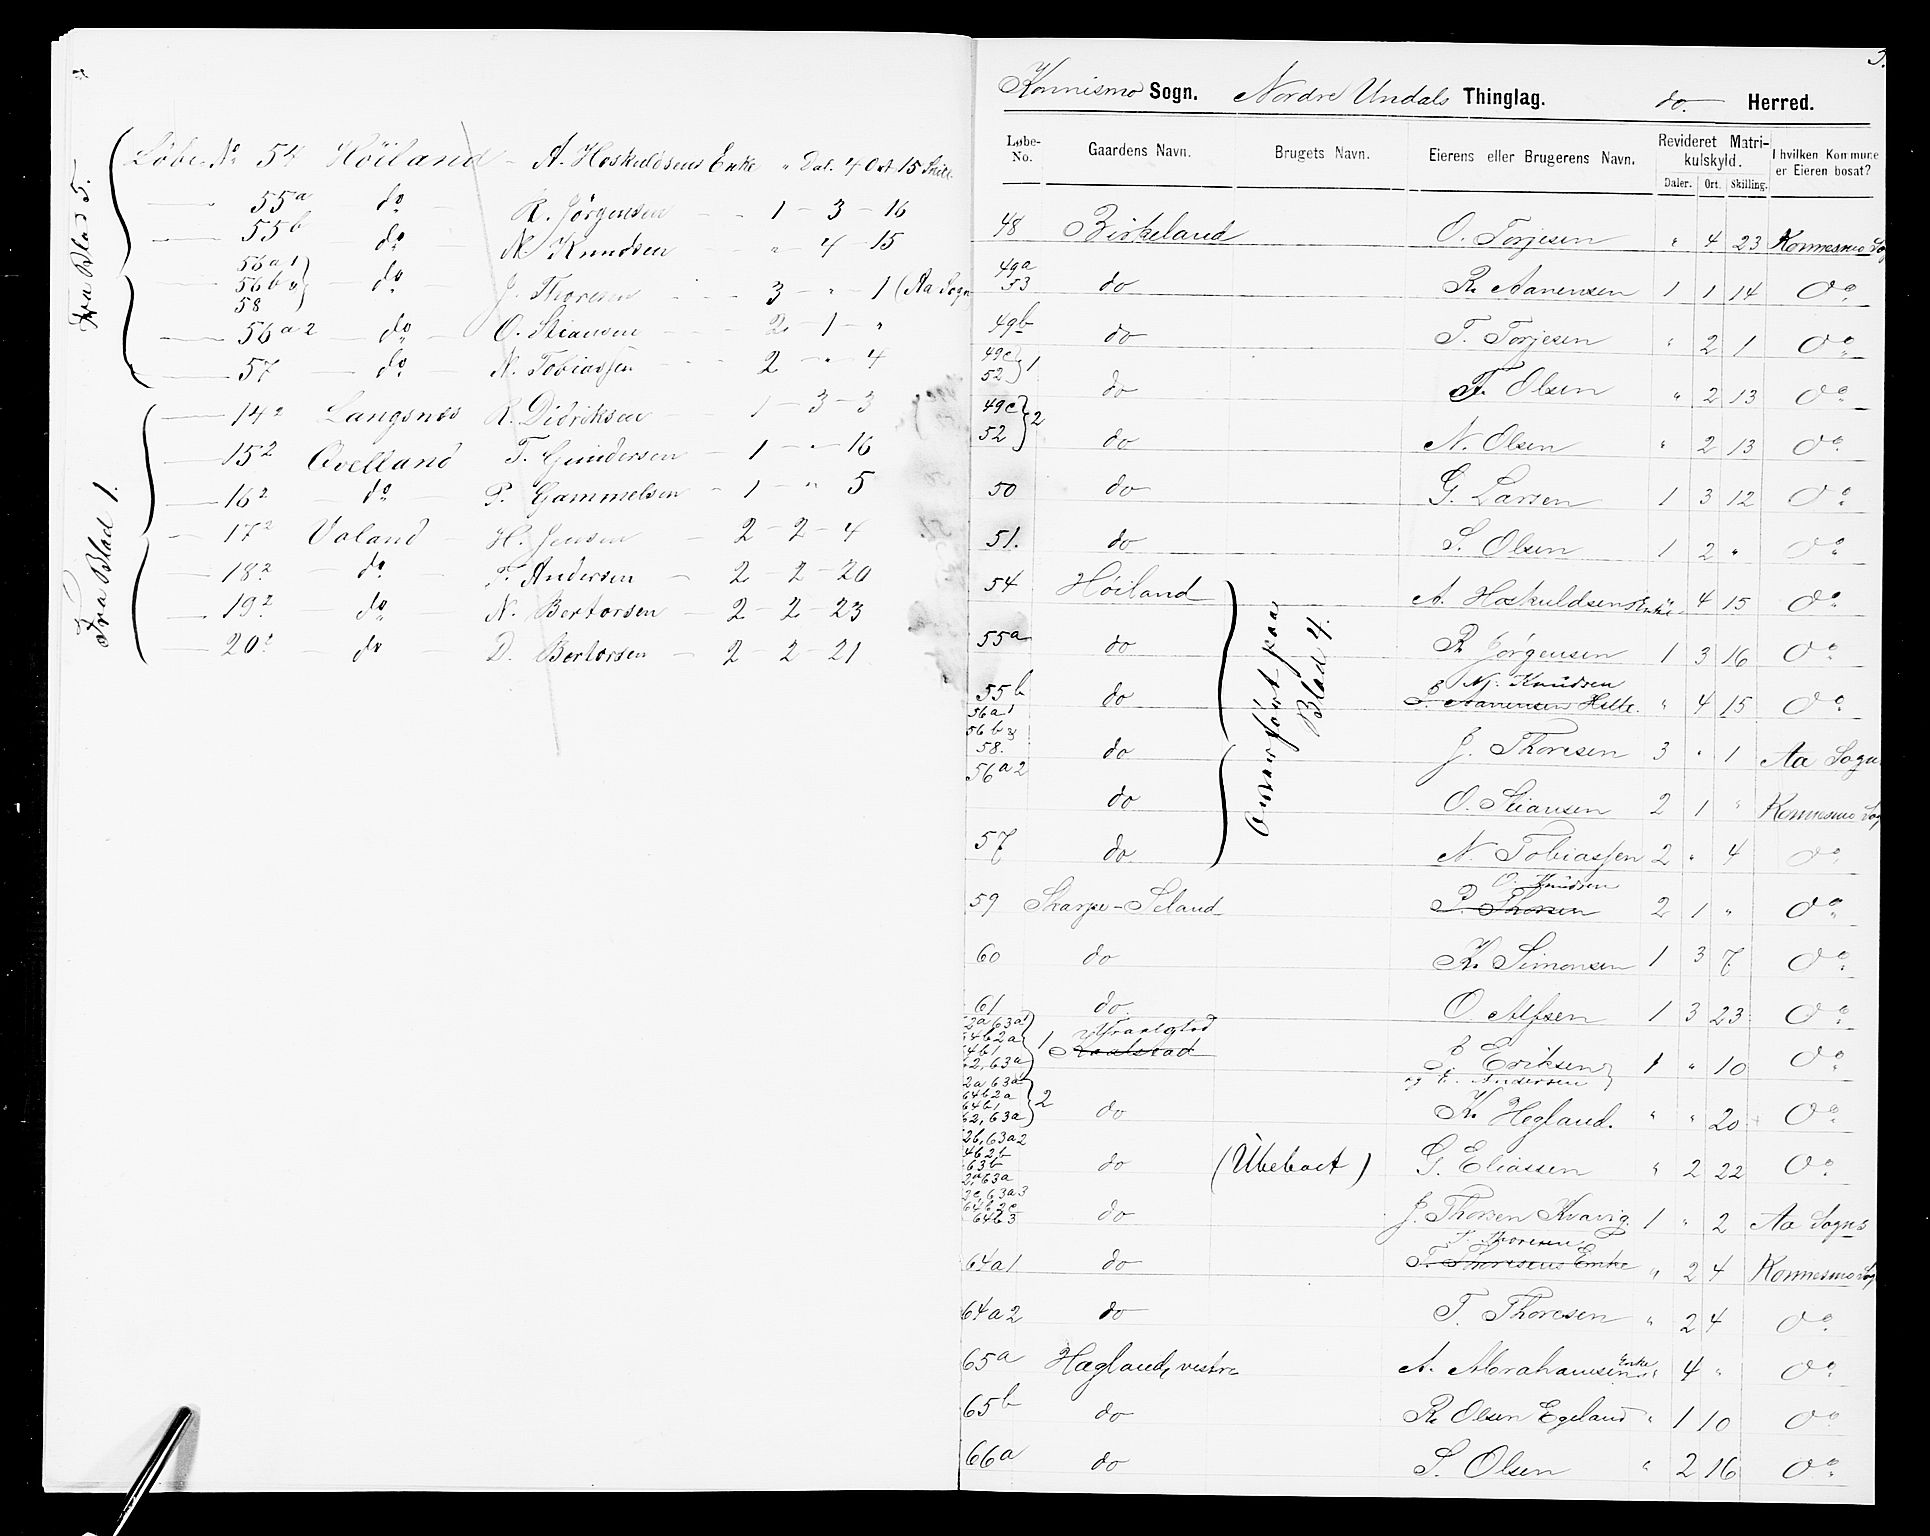 Fra Blad 5.
Løbe No 54 Höiland - A. Hoskuldsens Enke " Dal. 4 Ort 15 Skill.
55a do R. Jörgensen - - 1 - 3 - 16
55b do N. Knudsen " - 4 - 15
56a1
56b do J. Thoresen 3 - " - 1 (Aa Sogn
58
56a2 do O. Stiansen 2 - 1 - "
57 do N. Tobiassen 2 - " - 4
Fra Blad 1.
14 2 Langsnes R. Didriksen 1 - 3 - 3
15 2 Qvelland T. Gundersen - 1 - " - 16
16 2 do P. Gammelsen - 1 - " 5
17 2 Valand - H. Jensen - 2 - 2 - 4
18 2 do T. Andersen - 2 - 2 - 20
19 2 do N. Bertorsen - 2 - 2 - 23
20 2 do D. Bertorsen - 2 - 2 - 21
3.
Konnismo Sogn. Nordre Undals Thinglag. do. Herred.
Løbe-No. Gaardens Navn. Brugets Navn. Eierens eller Brugerens Navn. Revideret Matrikulskyld. I hvilken Kommune er Eieren bosat?
Daler. Ort. Skilling.
48 Birkeland O. Torjesen " 4 23 Konnesmo Sog
49a
53 do R. Aanensen 1 1 14 do
49b do T. Torjesen " 2 1 do
49c
52 } 1 do T. Olsen " 2 13 do
49c
52 } 2 do N. Olsen " 2 13 do
50 do G. Larsen 1 3 12 do
51. do S. Olsen 1 2 " do
54 Höiland A. Hoskuldsens Enke " 4 15 do
Overført paa
Blad 4.
55a do R Jörgensen 1 3 16 do
N. Knudsen
55b do Aanensen Helle. " 4 15 do
56a1
56b
58. do J. Thoresen 3 " 1 Aa Sogn
56a2 do O. Stiansen 2 1 " Konnesmo Sog
57 do N. Tobiassen 2 " 4 do
O. Knudsen
59 Skarpe-Seland P. Thorsen 2 1 " do
60 do K. Simonsen 1 3 7 do
61 do O. Alfsen 1 3 23 do
2a 63a1
64b2a
64b1
62, 63a } 1 Eriksen 1 " 10 do
og E. Andersen
2a 63a
64b2a
64b1
62, 63a } 2 do K. Hegland. " " 20 do
2b, 63a2
4b2b
63b
2, 63a do (Ubeboet) G. Eliassen " 2 22 do
2c, 63a3
64b2c
64b3 do J. Thorsen Kvavig. 1 " 2 Aa Sogns
T. Thoresen
64a1 do T. Thoresens Enke " 2 4 Konnesmo Sog
64a2 do T. Thoresen " 2 4 do
65a Hægland, vestre A. Abrahamsens Enke " 4 " do
65b do R. Olsen Egeland " 1 10 do
66a do S. Olsen " 2 16 do